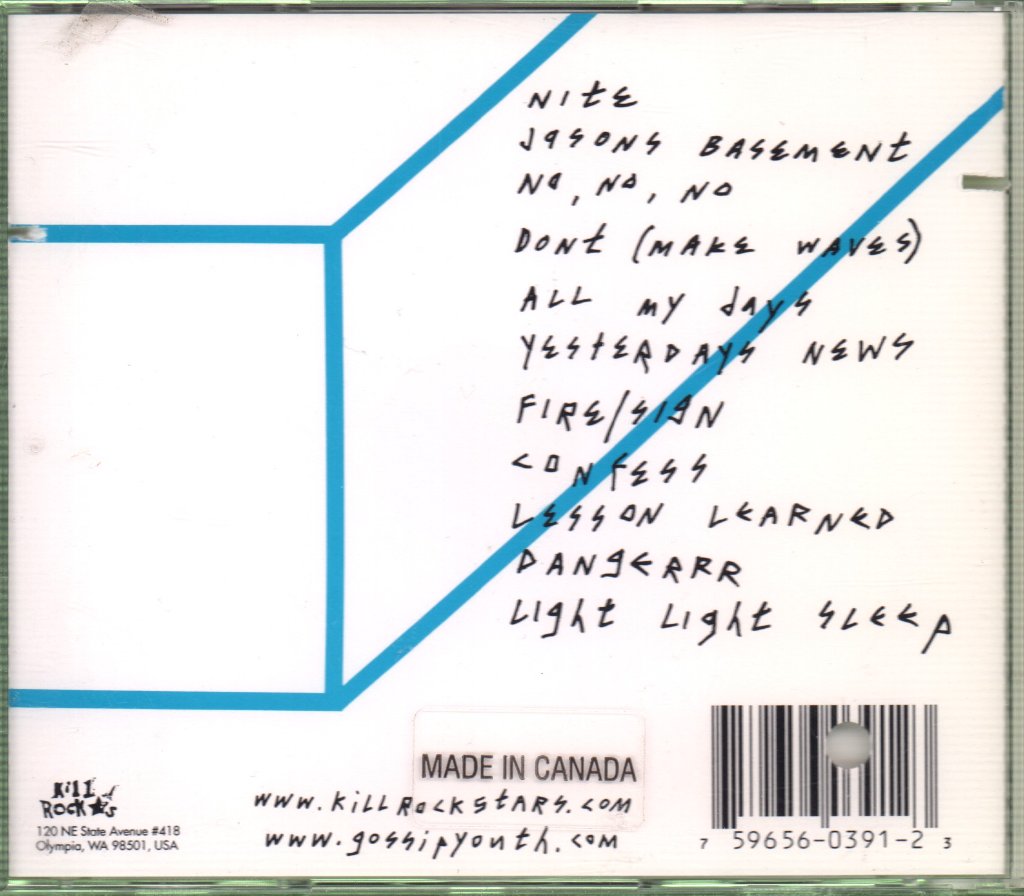 NitE
JaSONS BASEMENt
NO, NO, NO
DONt (MAKE WAVES)
ALL my days
YEStERDAYS NEWS
FIRE/SIGN
CONFESS
LESSON LEARNED
DANgERRR
Light Light SLEEP
MADE IN CANADA
www.killRockStARS.com
www.gossipyouth.com
Kill
ROCK★s
120 NE State Avenue #418
Olympia, WA 98501, USA
7 59656-0391-2 3